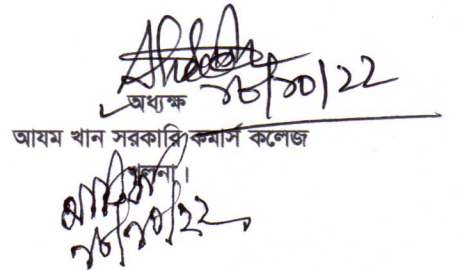 ১৮/১০/২২
অধ্যক্ষ
আযম খান সরকারি কমার্স কলেজ
খুলনা।
১৮/১০/২২